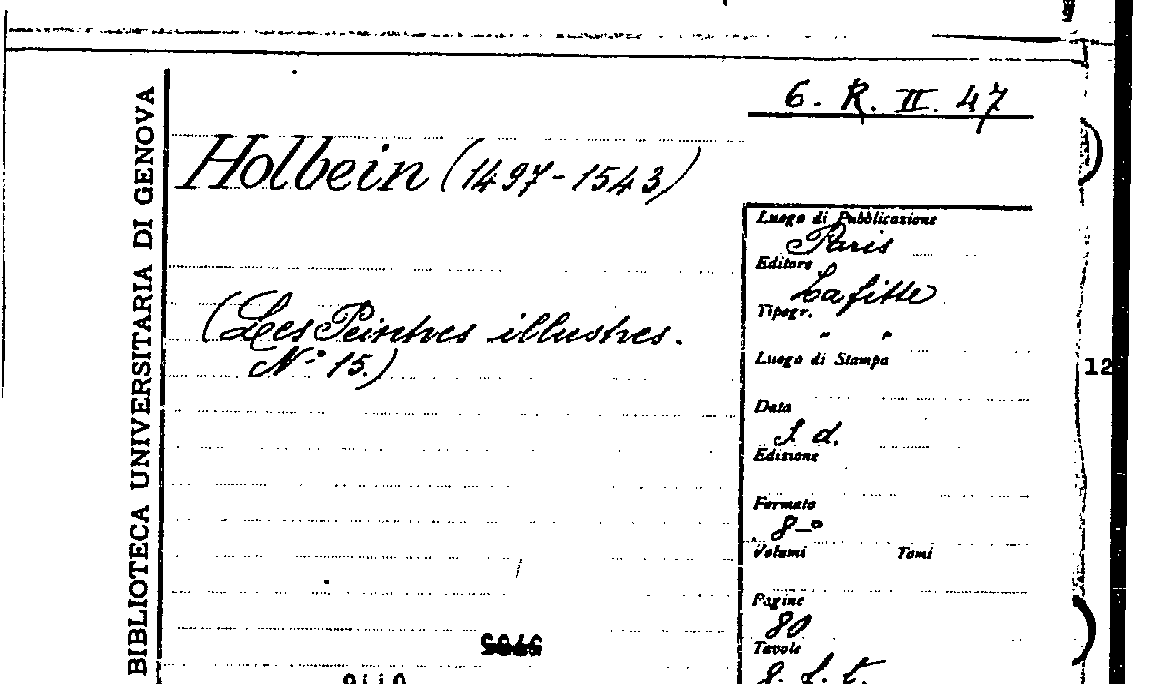 6. R. II. 47
BIBLIOTECA UNIVERSITARIA DI GENOVA
Holbein (1497-1543)
(Les Peintres illustres.
N° 15.)
Luogo di Pubblicazione
Paris
Editore
Lafitte
Tipogr.
" "
Luogo di Stampa
12
Data
s. d.
Edizione
Formato
8-°
Volumi Tomi
Pagine
80
Tavole
8. f. t.